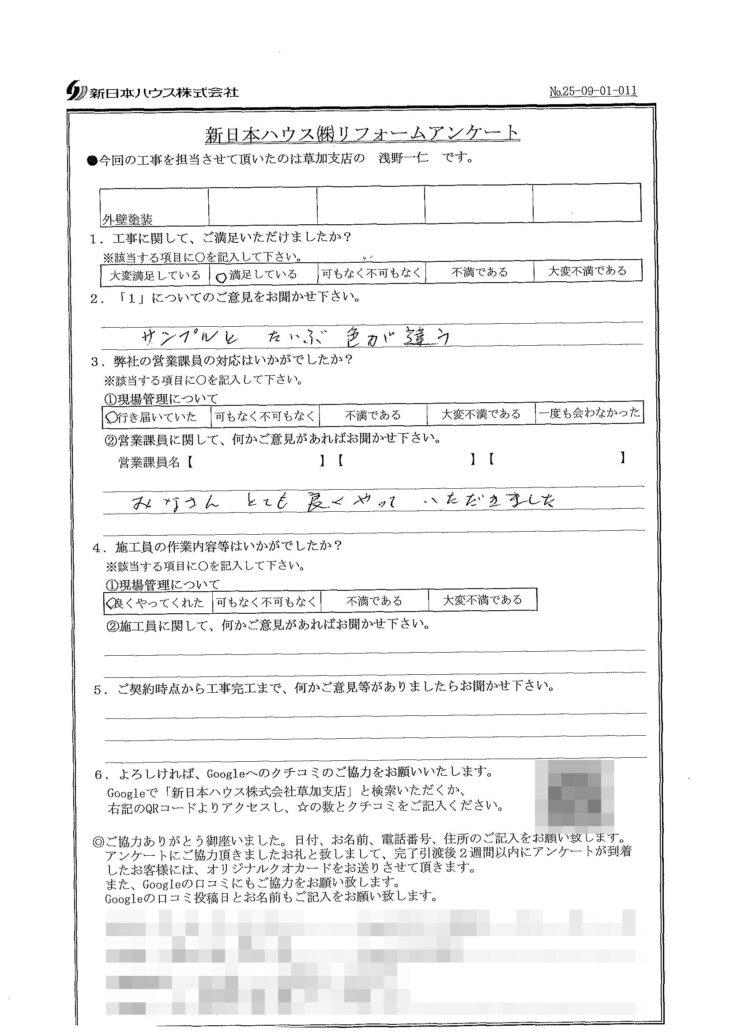 新日本ハウス株式会社
No.25-09-01-011
新日本ハウス㈱リフォームアンケート
●今回の工事を担当させて頂いたのは草加支店の 浅野一仁 です。
外壁塗装
1．工事に関して、ご満足いただけましたか？
※該当する項目に○を記入して下さい。
大変満足している ○満足している 可もなく不可もなく 不満である 大変不満である
2．「1」についてのご意見をお聞かせ下さい。
サンプルと だいぶ 色が 違う
3．弊社の営業課員の対応はいかがでしたか？
※該当する項目に○を記入して下さい。
①現場管理について
○行き届いていた 可もなく不可もなく 不満である 大変不満である 一度も会わなかった
②営業課員に関して、何かご意見があればお聞かせ下さい。
営業課員名【 】【 】【 】
みなさん とても 良くやって いただきました
4．施工員の作業内容等はいかがでしたか？
※該当する項目に○を記入して下さい。
①現場管理について
○良くやってくれた 可もなく不可もなく 不満である 大変不満である
②施工員に関して、何かご意見があればお聞かせ下さい。
5．ご契約時点から工事完工まで、何かご意見等がありましたらお聞かせ下さい。
6．よろしければ、Googleへのクチコミのご協力をお願いいたします。
Googleで「新日本ハウス株式会社草加支店」と検索いただくか、
右記のQRコードよりアクセスし、☆の数とクチコミをご記入ください。
◎ご協力ありがとう御座いました。日付、お名前、電話番号、住所のご記入をお願い致します。
アンケートにご協力頂きましたお礼と致しまして、完了引渡後２週間以内にアンケートが到着
したお客様には、オリジナルクオカードをお送りさせて頂きます。
また、Googleの口コミにもご協力をお願い致します。
Googleの口コミ投稿日とお名前もご記入をお願い致します。